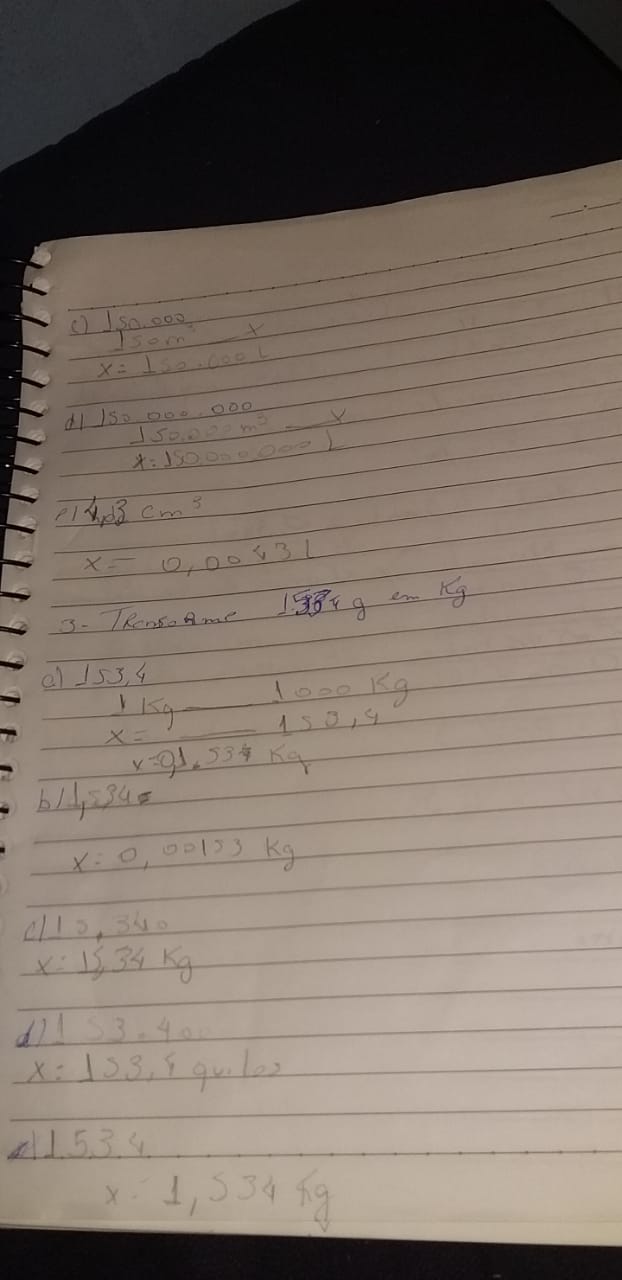 c) 150.000
150m³ x
x = 150.000 L
d) 150.000.000
150.000m³ x
x = 150.000.000 L
cm³
x = 0,0043 L
3- g em Kg
a) 153,4
1 Kg 1000 Kg
x = 153,4
x = 0,1.534 Kg
b) 1,534
x = 0,00153 Kg
c) 15,340
x = 15,34 Kg
d) 153.400
x = 153,4 quilos
1.534
x = 1,534 Kg